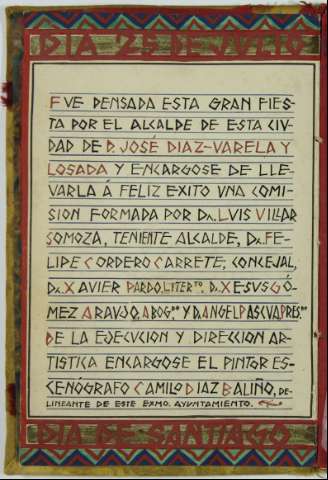 DIA 25 DE JULIO
FVE PENSADA ESTA GRAN FIES-
TA POR EL ALCALDE DE ESTA CIV-
DAD DE D. JOSÉ DIAZ-VARELA Y
LOSADA Y ENCARGOSE DE LLE-
VARLA Á FELIZ EXITO VNA COMI-
SION FORMADA POR Dn. LVIS VILLAR
SOMOZA, TENIENTE ALCALDE, Dn. FE-
LIPE CORDERO CARRETE, CONCEJAL,
Dn. XAVIER PARDO, LITERto. D. XESVS GÓ-
MEZ ARAVJO, ABOGdo Y D. ANGEL PASCVA PRES.
DE LA EJECVCION Y DIRECCION AR-
TISTICA ENCARGOSE EL PINTOR ES-
CENÓGRAFO CAMILO DIAZ BALIÑO, DE-
LINEANTE DE ESTE EXMO. AYUNTAMIENTO.
DIA DE SANTIAGO